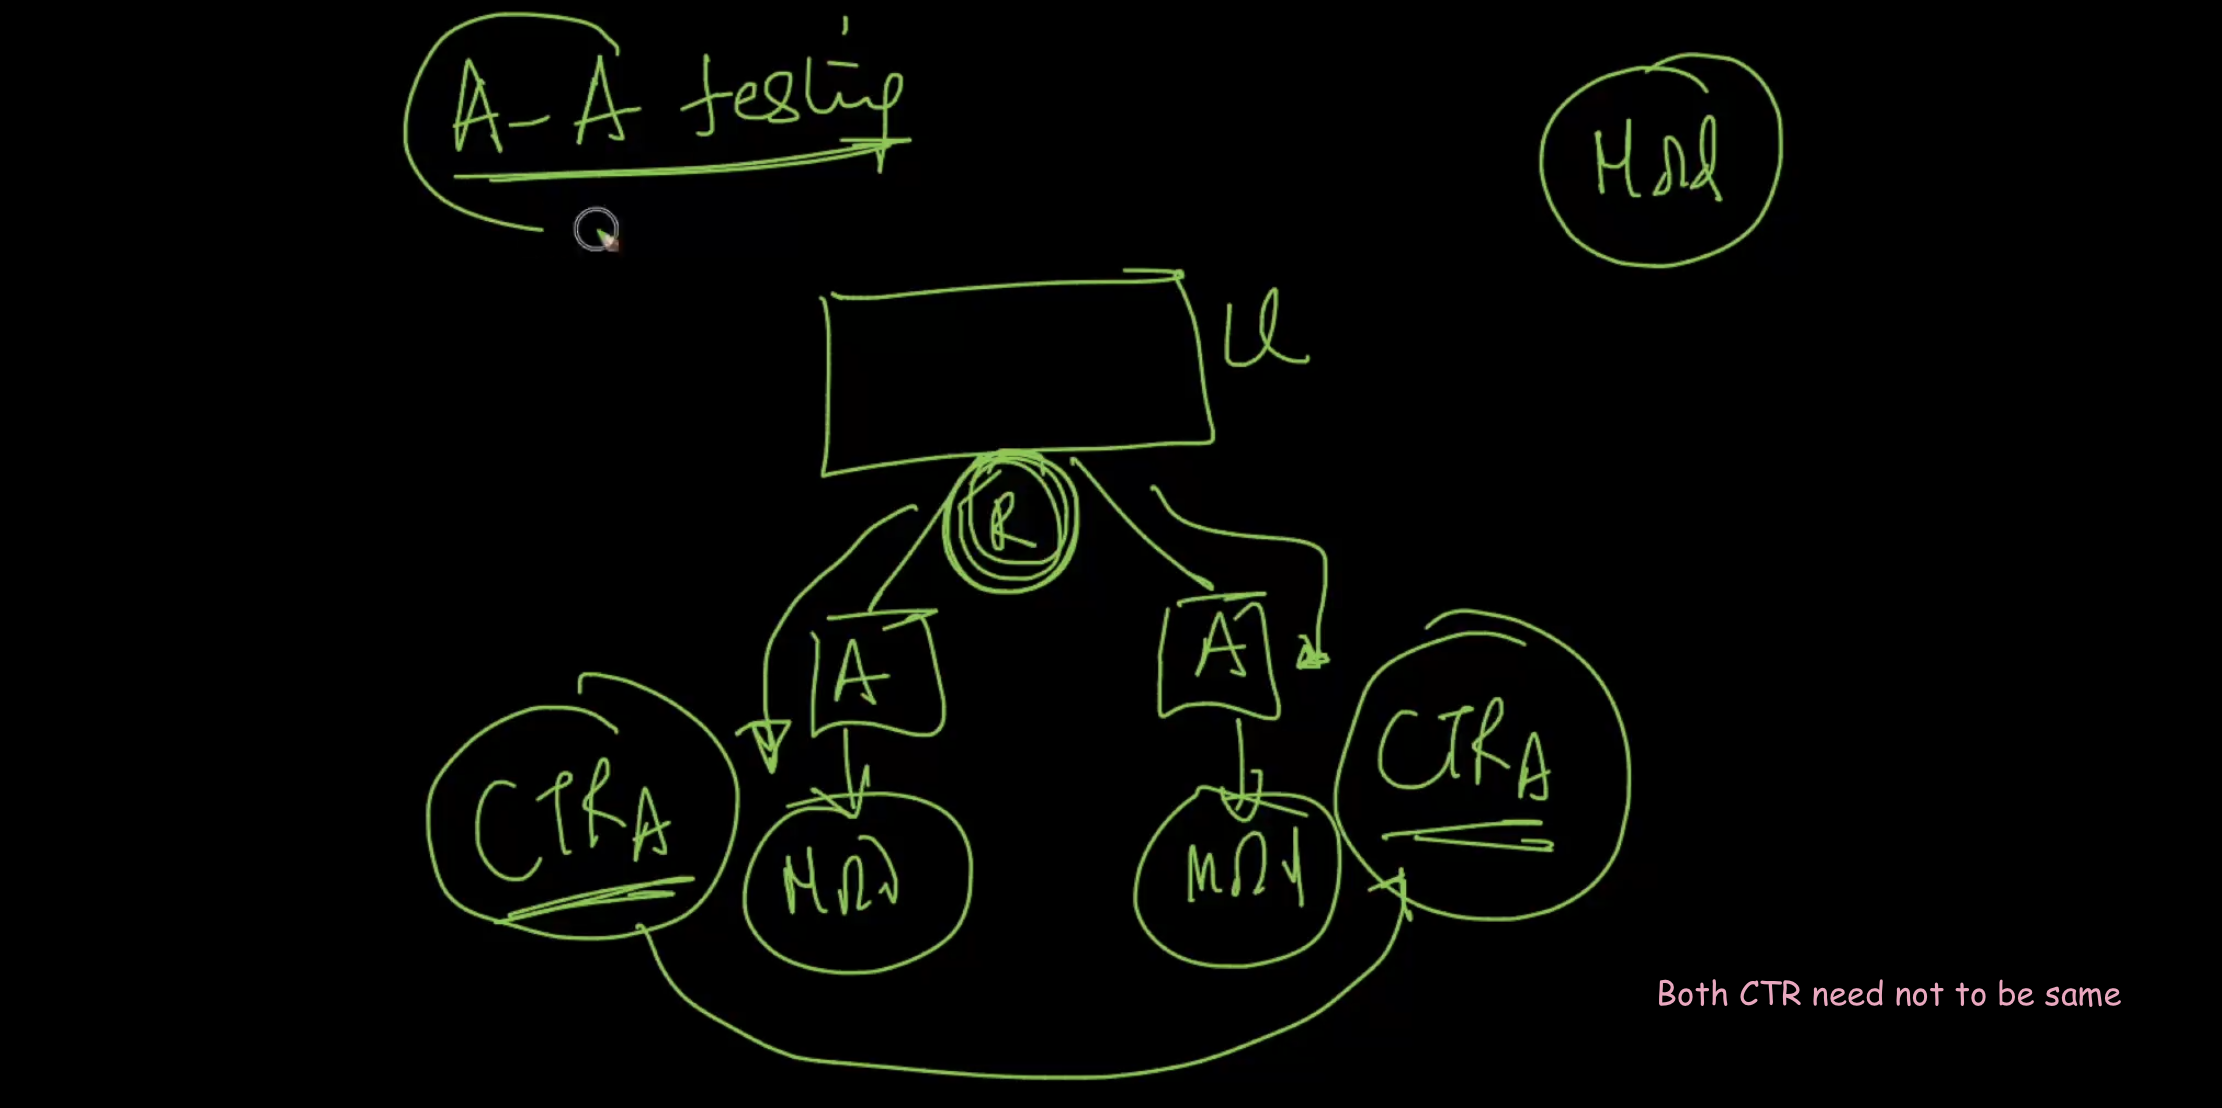 A-A testing
U
R
A
A
CTRA
CTRA
Both CTR need not to be same